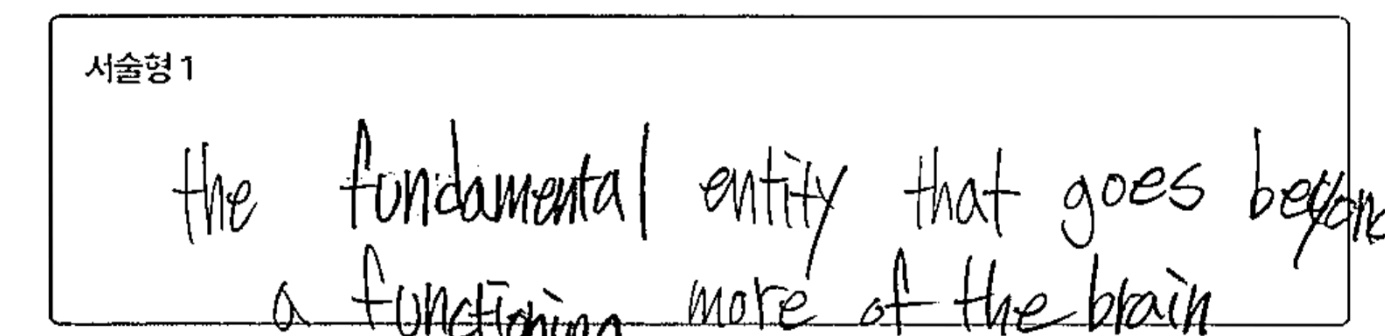 서술형 1
the fundamental entity that goes beyond
a functioning more of the brain